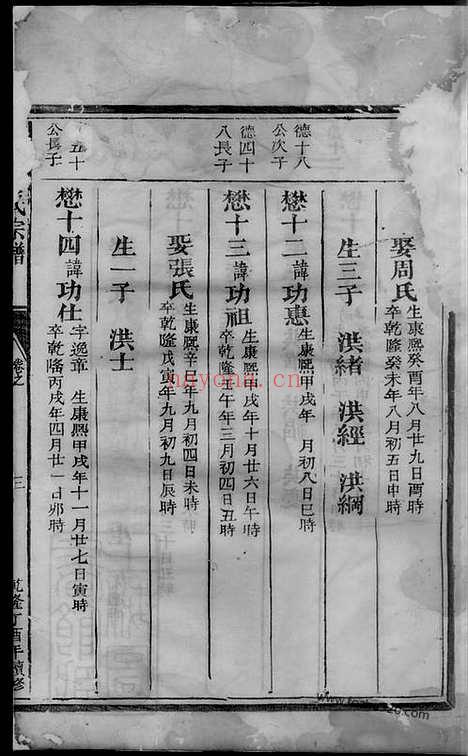 娶周氏
生康熙癸酉年八月廿九日酉時
卒乾隆癸未年八月初五日申時
生三子 洪緒 洪經 洪綱
德十八
公次子
懋十二諱功惠
生康熙甲戌年 月初八日巳時
德四十
八長子
懋十三諱功祖
生康熙甲戌年十月廿六日午時
卒乾隆 午年三月初四日丑時
娶張氏
生康熙辛巳年九月初四日未時
卒乾隆戊寅年九月初九日辰時
生一子 洪士
五十
公長子
懋十四諱功仕
字逸章 生康熙甲戌年十一月廿七日寅時
卒乾隆丙戌年四月廿一日卯時
氏宗譜
卷之
三
乾隆丁酉年續修
nayona.cn